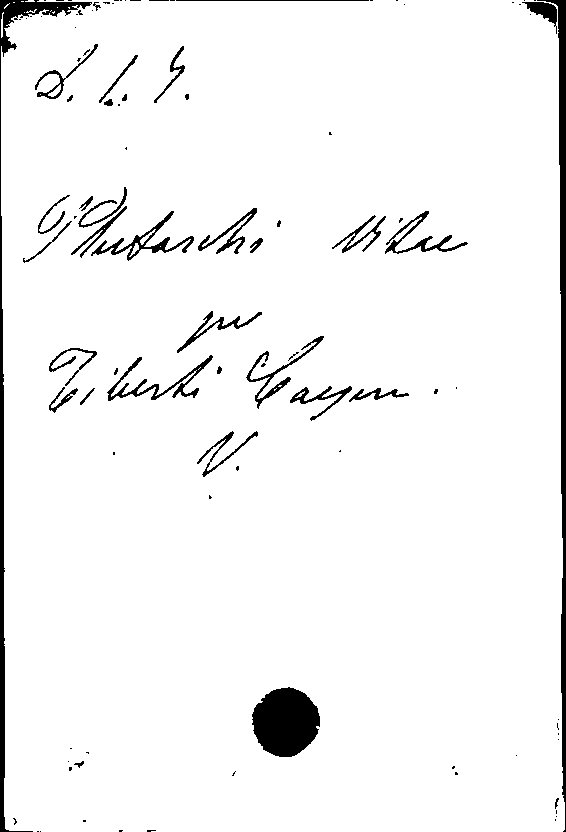 D. 1. 4.
Plutarchi Vitae
per
Tiberti Caesen.
V.